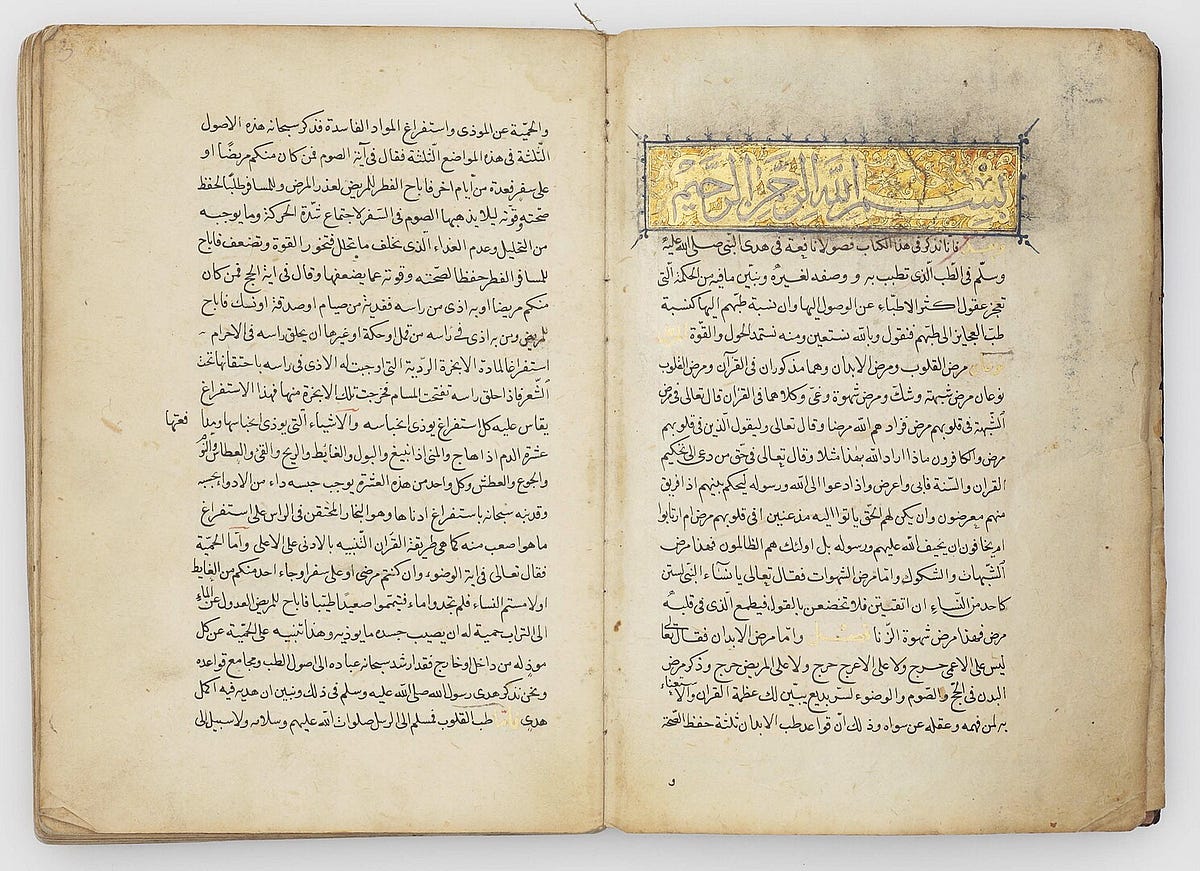 بسم الله الرحمن الرحيم
فانا نذكر فى هذا الكتاب فصولا نافعة فى هدى النبى صلى الله عليه
وسلم فى الطب الذى تطبب به و وصفه لغيره ونبين مافيه من الحكمة التى
تعجز عقول اكثر الاطباء عن الوصول اليها وان نسبة طبهم اليها كنسبة
طب العجايز الى طبهم فنقول وبالله نستعين ومنه نستمد الحول والقوة
نوعان مرض القلوب ومرض الابدان وهما مذكوران فى القرآن ومرض القلوب
نوعان مرض شبهة وشك ومرض شهوة وغى وكلاهما فى القران قال تعالى فى مرض
الشبهة فى قلوبهم مرض فزادهم الله مرضا وقال تعالى وليقول الذين فى قلوبهم
مرض والكافرون ماذا اراد الله بهذا مثلا وقال تعالى فى حق من دعى الى تحكيم
القران والسنة فابى واعرض واذا دعوا الى الله ورسوله ليحكم بينهم اذا فريق
منهم معرضون وان يكن لهم الحق ياتوا اليه مذعنين افى قلوبهم مرض ام ارتابوا
ام يخافون ان يحيف الله عليهم ورسوله بل اولئك هم الظالمون فهذا مرض
الشبهات والشكوك واما مرض الشهوات فقال تعالى يا نساء النبى لستن
كاحد من النساء ان اتقيتن فلا تخضعن بالقول فيطمع الذى فى قلبه
مرض فهذا مرض شهوة الزنا فصل واما مرض الابدان فقال تعالى
ليس على الاعمى حرج ولا على الاعرج حرج ولا على المريض حرج وذكر مرض
البدن فى الحج والصوم والوضوء لسر بديع يبين لك عظمة القران والاستغناء
به لمن فهمه وعقله عن سواه وذلك ان قواعد طب الابدان ثلثة حفظ الصحة
و
والحمية عن الموذى واستفراغ المواد الفاسدة فذكر سبحانه هذه الاصول
الثلثة فى هذه المواضع الثلثة فقال فى آية الصوم فمن كان منكم مريضا او
على سفر فعدة من ايام اخر فاباح الفطر للمريض لعذر المرض وللمسافر طلبا لحفظ
صحته وقوته ليلا يذهبها الصوم فى السفر لاجتماع شدة الحركة وما يوجبه
من التحليل وعدم الغذاء الذى يخلف ما يتحلل فتخور القوة وتضعف فاباح
للمسافر الفطر حفظا لصحته وقوته عما يضعفها وقال فى اية الحج فمن كان
منكم مريضا او به اذى من راسه ففدية من صيام او صدقة او نسك فاباح
للمريض ومن به اذى فى راسه من قمل او حكة او غيرها ان يحلق راسه فى الاحرام
استفراغا لمادة الابخرة الردية التى اوجبت له الاذى فى راسه باحتقانها تحت
الشعر فاذا حلق راسه تفتحت المسام فخرجت تلك الابخرة منها فهذا الاستفراغ
يقاس عليه كل استفراغ يوذى انحباسه والاشياء التى يوذى انحباسها ومدافعتها
عشرة الدم اذا هاج والمنى اذا تبيغ والبول والغايط والريح والقى والعطاس والنوم
والجوع والعطش وكل واحد من هذه العشرة يوجب حبسه داء من الادواء بحسبه
وقد نبه سبحانه باستفراغ ادناها وهو البخار المحتقن فى الراس على استفراغ
ما هو اصعب منه كما هى طريقة القران التنبيه بالادنى على الاعلى واما الحمية
فقال تعالى فى اية الوضوء وان كنتم مرضى او على سفر او جاء احد منكم من الغايط
اولامستم النساء فلم تجدوا ماء فتيمموا صعيدا طيبا فاباح للمريض العدول عن الماء
الى التراب حمية له ان يصيب جسده ما يوذيه وهذا تنبيه على الحمية عن كل
موذ له من داخل او خارج فقد ارشد سبحانه عباده الى اصول الطب ومجامع قواعده
ونحن نذكر هدى رسول الله صلى الله عليه وسلم فى ذلك ونبين ان هديه فيه اكمل
هدى فاما طب القلوب فمسلم الى الرسل صلوات الله عليهم وسلامه ولا سبيل الى